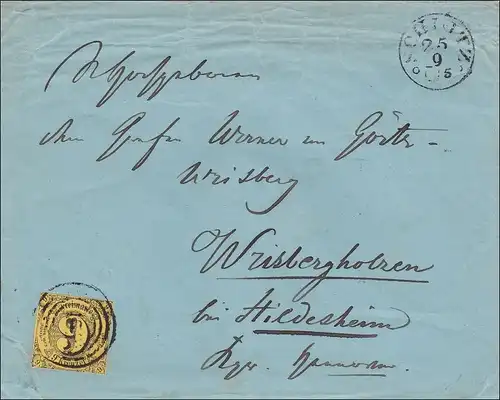 SCHLITZ
25
9
Hochgeboren
dem Grafen Werner von Görtz-
Wrisberg
Wrisbergholzen
bei Hildesheim
Kgr. Hannover
9